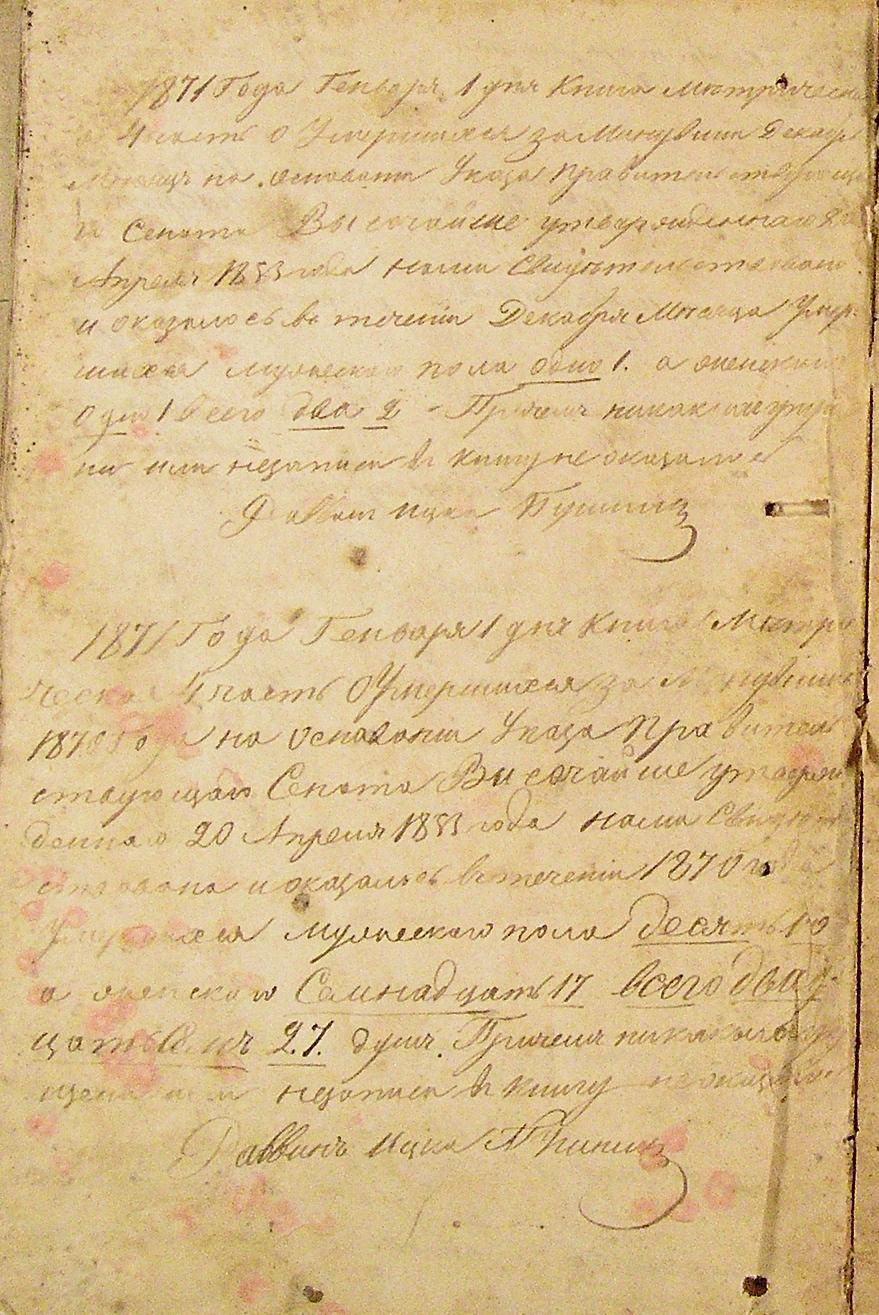 1871 Года Генваря 1 дня Книга Метрическа
4 часть о Умершихся за Минувши Декабрь
Месяцъ на основани Указа правительствующа
го Сената Высочайше утвержденнаго 20
Апреля 1833 года нами Свидетельствована
и оказалось въ течении Декабря Месяца Умер
шихся мужескаго пола одно 1. а женскаго
одно 1 всего два 2 - Причемъ никаких
ни или незаписи въ книгу не оказалось
Раввин Ицка
1871 Года Генваря 1 дня Книга Метри
ческа 4 часть О Умершихся за Минувши
1870 Года на основани Указа Правитель
ствующаго Сената Высочайше утверж
деннаго 20 Апреля 1833 года нами Свидетел
ствована и оказалось въ течении 1870 года
Умершихся мужескаго пола десять 10
а женскаго Семнадцать 17 всего двад
цать Семь 27. душъ. Причемъ никакого
или незаписи въ книгу не оказалось
Раввинъ Ицка